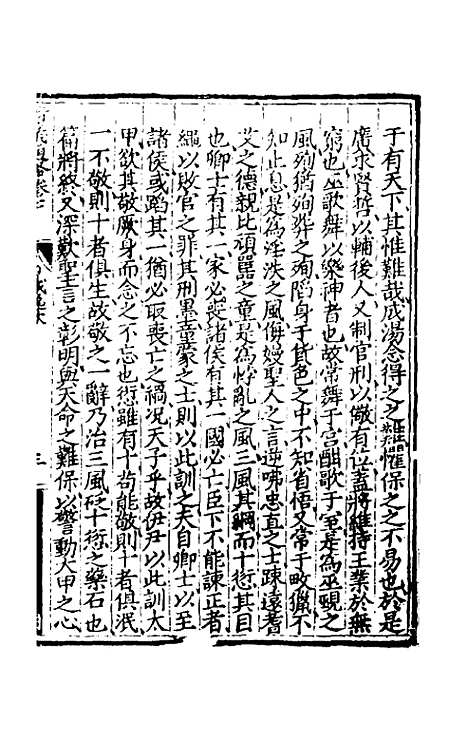 于有天下其惟難哉成湯念得之之難惟保之之不易也於是
廣求賢哲以輔後人又制官刑以儆有位蓋將維持王業於無
窮也巫歌舞以樂神者也故常舞于宮酣歌于室是為巫覡之
風殉猶殉葬之殉陷身于貨色之中不知省悟又常于畋獵不
知止息是為淫泆之風侮嫚聖人之言逆咈忠直之士踈遠耆
艾之德親比頑嚚之童是為悖亂之風三風其綱而十愆其目
也卿士有其一家必喪諸侯有其一國必亡臣下不能諫正者
繩以敗官之罪其刑墨童蒙之士則以此訓之夫自卿士以至
諸侯或蹈其一猶必取喪亡之禍况天子乎故伊尹以此訓太
甲欲其敬厥身而念之不忘也愆雖有十苟能敬則十者俱泯
一不敬則十者俱生故敬之一辭乃治三風砭十愆之藥石也
篇將終又深歎聖言之彰明與天命之難保以警動太甲之心